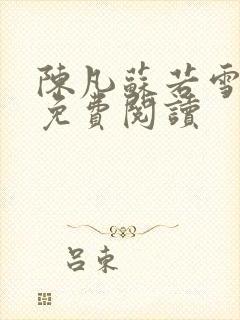 陳凡蘇若雪
免費閱讀
呂束